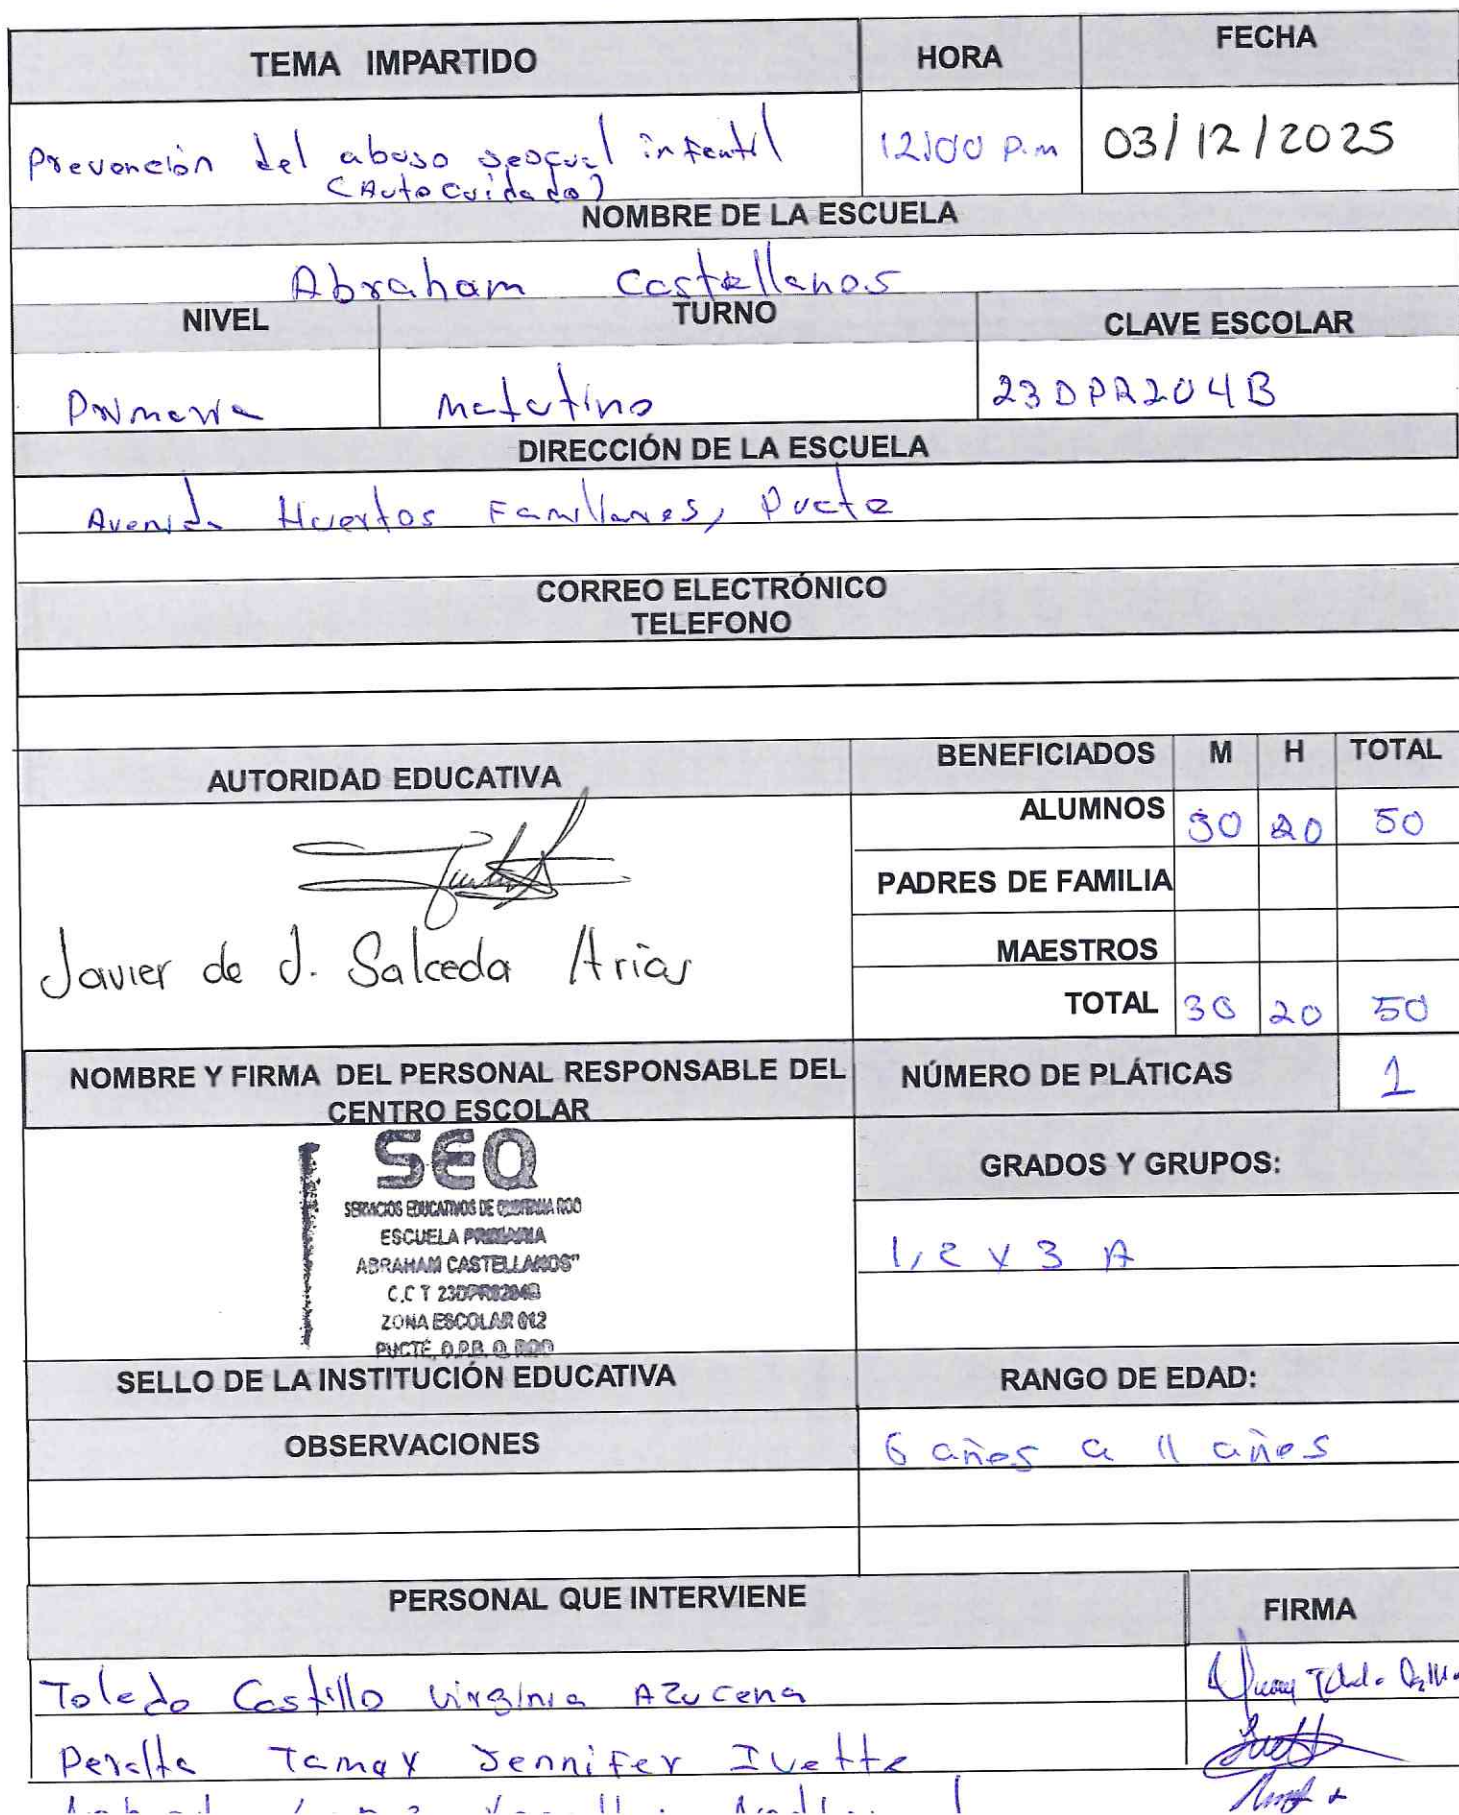 TEMA IMPARTIDO HORA FECHA
Prevención del abuso sexual infantil 12:00 p.m 03/12/2025
(Autocuidado)
NOMBRE DE LA ESCUELA
Abraham Castellanos
NIVEL TURNO CLAVE ESCOLAR
Primaria Matutino 23DPR204B
DIRECCIÓN DE LA ESCUELA
Avenida Huertos Familiares, Pucte
CORREO ELECTRÓNICO
TELEFONO
AUTORIDAD EDUCATIVA BENEFICIADOS M H TOTAL
ALUMNOS 30 20 50
PADRES DE FAMILIA
Javier de J. Salceda Arias
MAESTROS
TOTAL 30 20 50
NOMBRE Y FIRMA DEL PERSONAL RESPONSABLE DEL
CENTRO ESCOLAR
NÚMERO DE PLÁTICAS 1
SEQ
SERVICIOS EDUCATIVOS DE QUINTANA ROO
ESCUELA PRIMARIA
ABRAHAM CASTELLANOS"
C.C T
ZONA ESCOLAR 012
PUCTÉ, O.P.B. Q. ROO
GRADOS Y GRUPOS:
1, 2 y 3 A
SELLO DE LA INSTITUCIÓN EDUCATIVA RANGO DE EDAD:
OBSERVACIONES 6 años a 11 años
PERSONAL QUE INTERVIENE FIRMA
Toledo Castillo Virginia Azucena
Peralta Tamay Jennifer Ivette